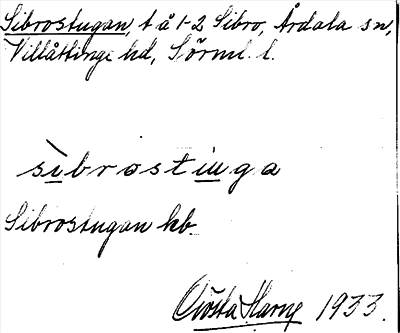 Sibrostugan, t å 1-2 Sibro, Årdala sn,
Villåttinge hd, Sörml. l.
sìbrostuga
Sibrostugan kb.
Gösta Harng 1933.